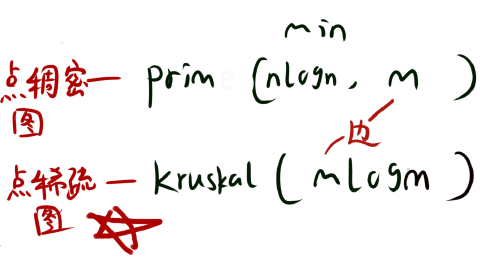 min
点稠密— prim (nlogn, m )
图
也
点稀疏— kruskal ( mlogm )
图